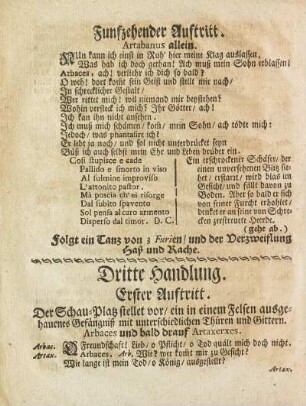 Funfzehender Auftritt.
Artabanus allein.
NUn kann ich einst in Ruh' hier meine Klag auslassen,
Was hab ich doch gethan! Ach muß mein Sohn erblassen!
Arbaces, ach! verliehr ich dich so bald?
O weh! dort komt sein Geist und stellt mir nach/
In schrecklicher Gestalt/
Wer rettet mich! will niemand mir beystehen?
Wohin versteck ich mich? Ihr Götter/ ach!
Ich kan ihn nicht ansehen.
Ich muß mich schämen/ fort/ mein Sohn/ ach tödte mich:
Jedoch/ was phantasire ich?
Er lebt ja noch/ und sol nicht unterdrückt seyn
Büß ich auch selbst mein Ehr und Leben drüber ein.
Cosi stupisce e cade
Pallido e smorto in viso
Al fulmine improviso
L'attonito pastor.
Mà poscia ch'ei risorge
Dal subito spavento
Sol pensa al caro armento
Disperso dal timor. D. C.
Ein erschrockener Schäfer/ der
einen unversehenen Blitz sie-
het/ erstarrt/ wird blas im
Gesicht/ und fällt davon zu
Boden. Aber so bald er sich
von seiner Furcht erhohlet/
denket er an seine von Schre-
cken zerstreute Heerde.
(gehe ab.)
Folgt ein Tanz von 3 Furien/ und der Verzweiflung
Haß und Rache.
Dritte Handlung.
Erster Auftritt.
Der Schau-Platz stellet vor/ ein in einem Felsen ausge-
hauenes Gefängniß mit unterschiedlichen Thüren und Gittern.
Arbaces und bald drauf Artaxerxes.
Arbac. O Freundschaft! Lieb/ o Pflicht/ o Tod quält mich doch nicht.
Artax. Arbaces. Arb. Wie? wer komt mir zu Gesicht?
Wie lange ist mein Tod/ o König/ ausgestellt?
Artax.